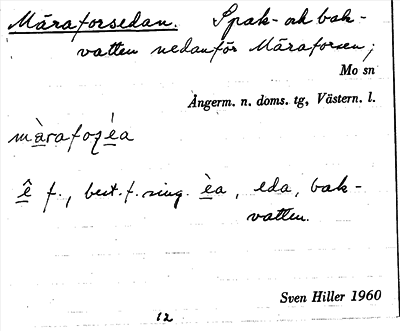 Måraforsedan. Spak- och bak-
vatten nedanför Måraforsen;
Mo sn
Ångerm. n. doms. tg, Västern. l.
màrafoṣéa
ê f., best. f. sing. èa, eda, bak-
vatten.
Sven Hiller 1960
12